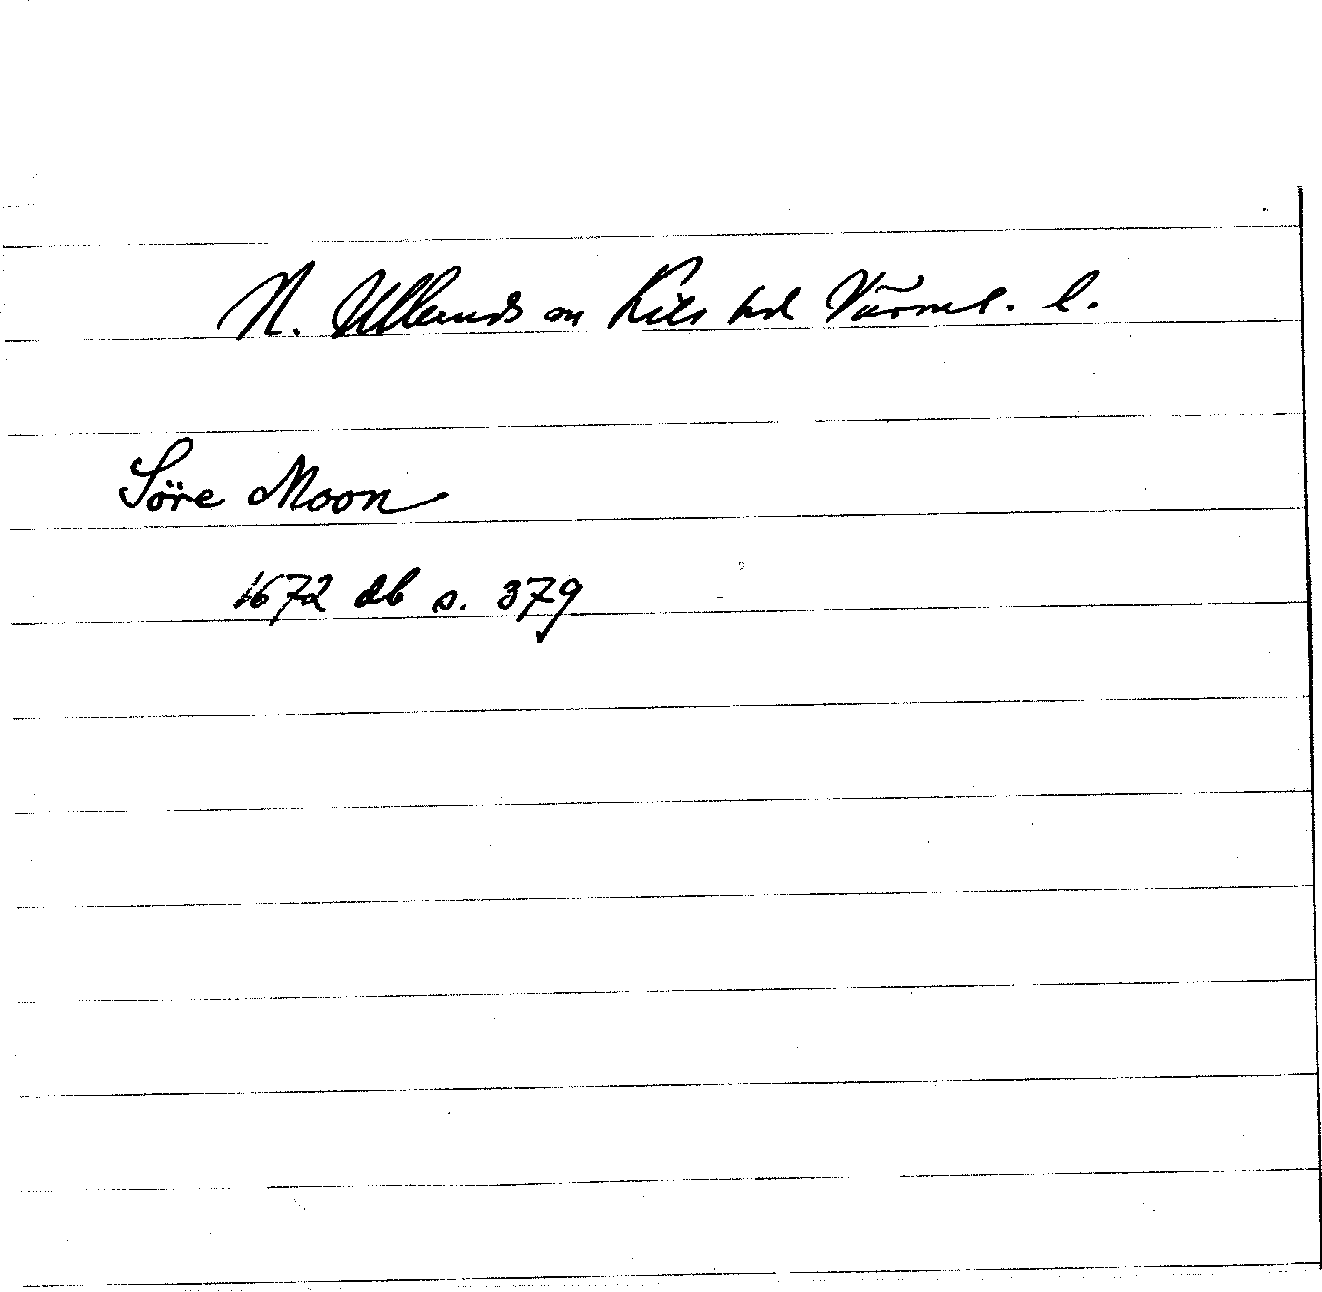 N. Ullerud sn Kils hd Värml. l.
Söre Moon
1672 db s. 379